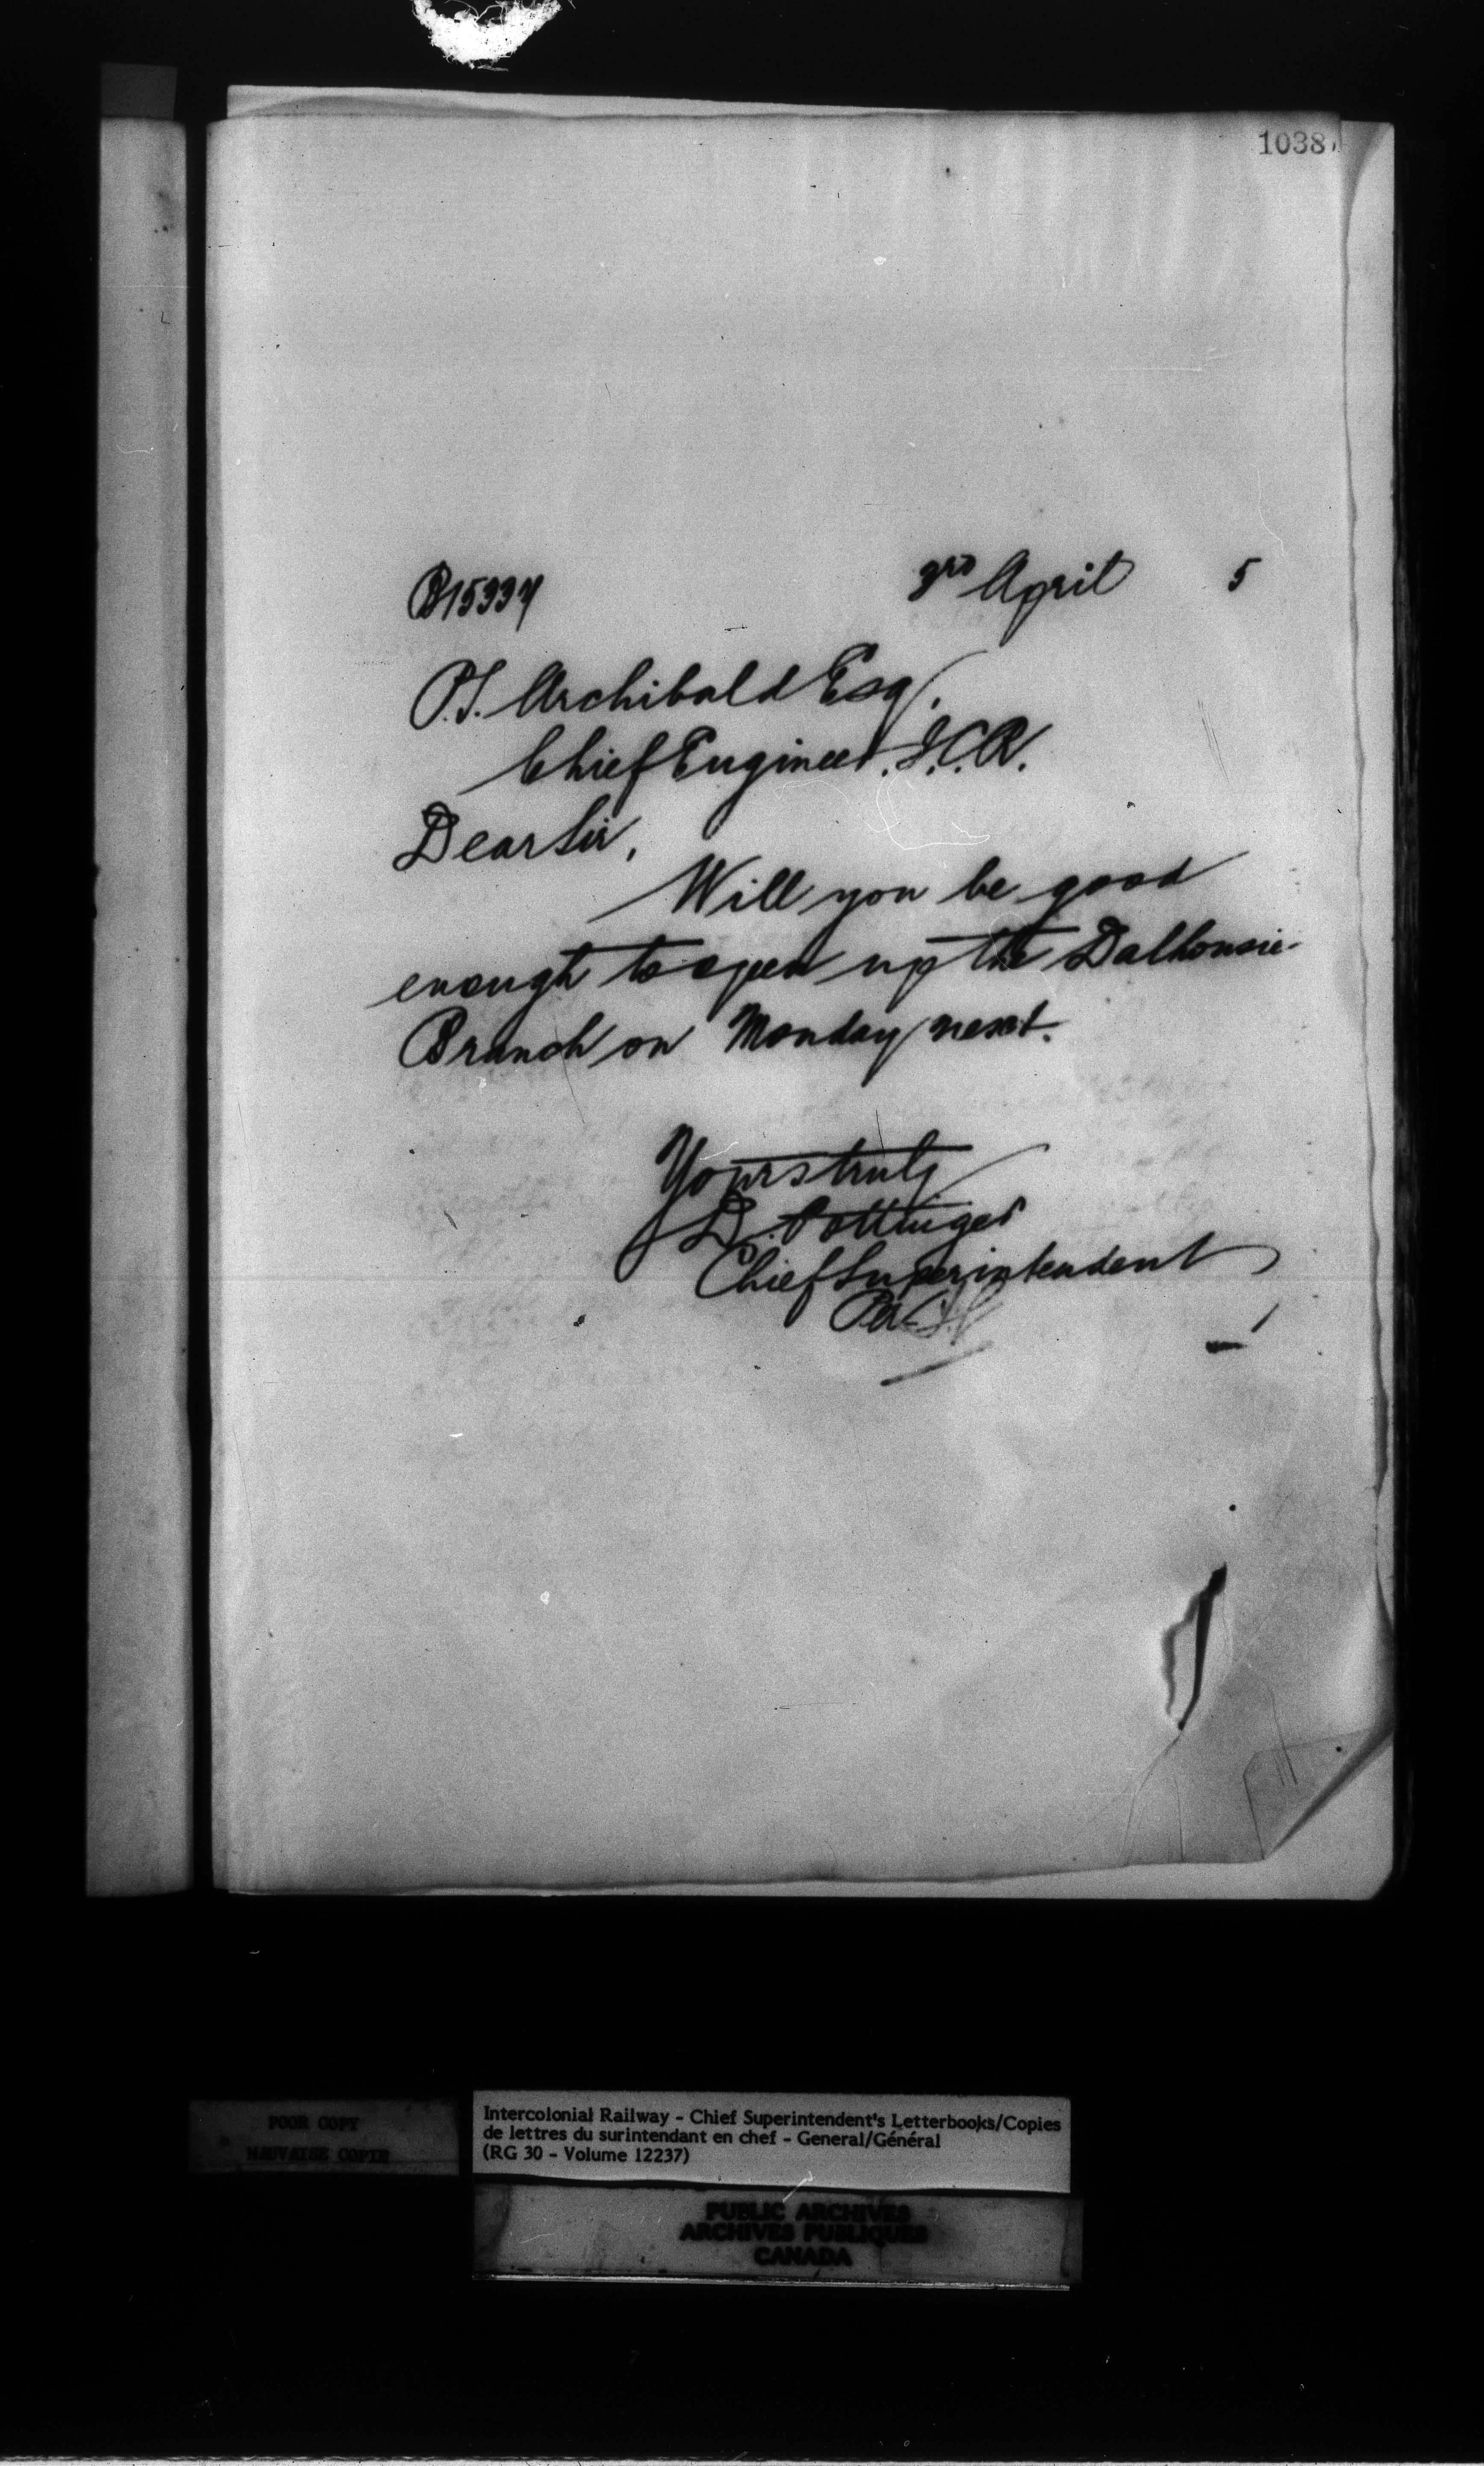 1038
3rd April 5
B15334
P.S. Archibald Esq.
Chief Engineer. I.C.R.
Dear Sir,
Will you be good
enough to open up the Dalhousie
Branch on Monday next.
Yours truly
D. Pottinger
Chief Superintendent
Per
POOR COPY
MAUVAISE COPIE
Intercolonial Railway - Chief Superintendent's Letterbooks/Copies
de lettres du surintendant en chef - General/Général
(RG 30 - Volume 12237)
PUBLIC ARCHIVES
ARCHIVES PUBLIQUES
CANADA